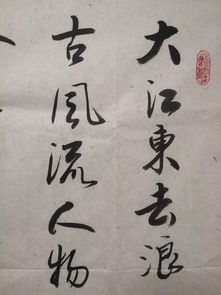 大江東去浪
古風流人物